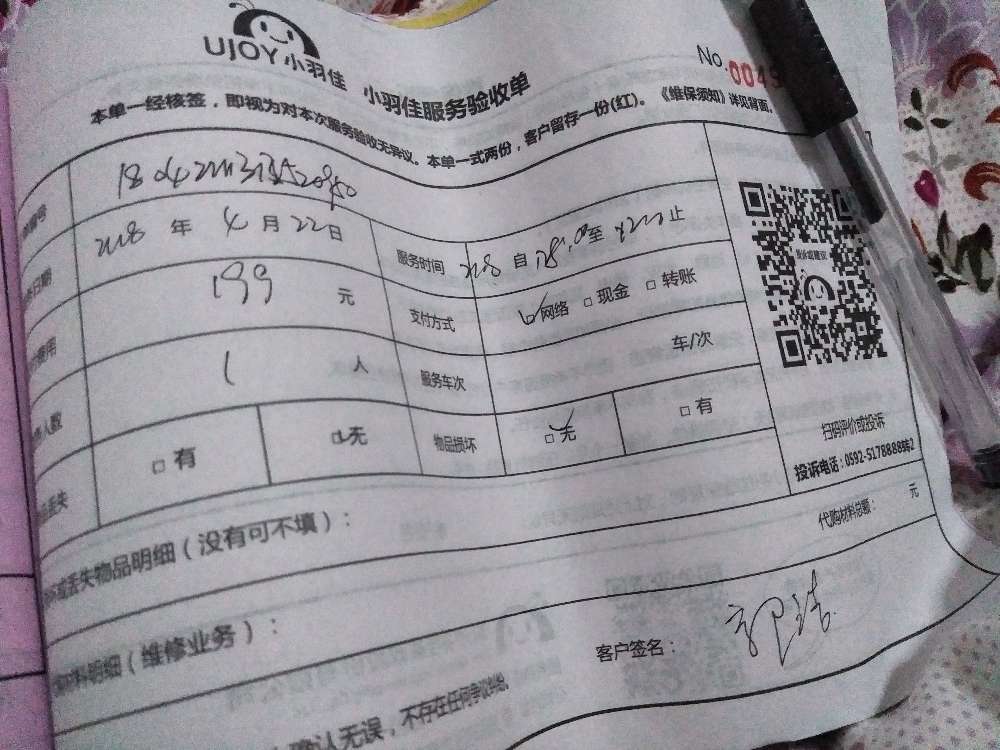 UJOY 小羽佳 小羽佳服务验收单 No.004
本单一经核签，即视为对本次服务验收无异议。本单一式两份，客户留存一份(红)。《维保须知》详见背面。
编号
日期 2018 年 4 月 22 日 服务时间 自 至 止
费用 199 元 支付方式 网络 □ 现金 □ 转账
人数 1 人 服务车次 车/次
丢失 □ 有 □ 无 物品损坏 □ 无 □ 有
扫码评价或投诉
投诉电话：0592-5178888转2
丢失物品明细（没有可不填）：
代购材料总额： 元
料明细（维修业务）：
客户签名：
确认无误，不存在任何争议纠纷。